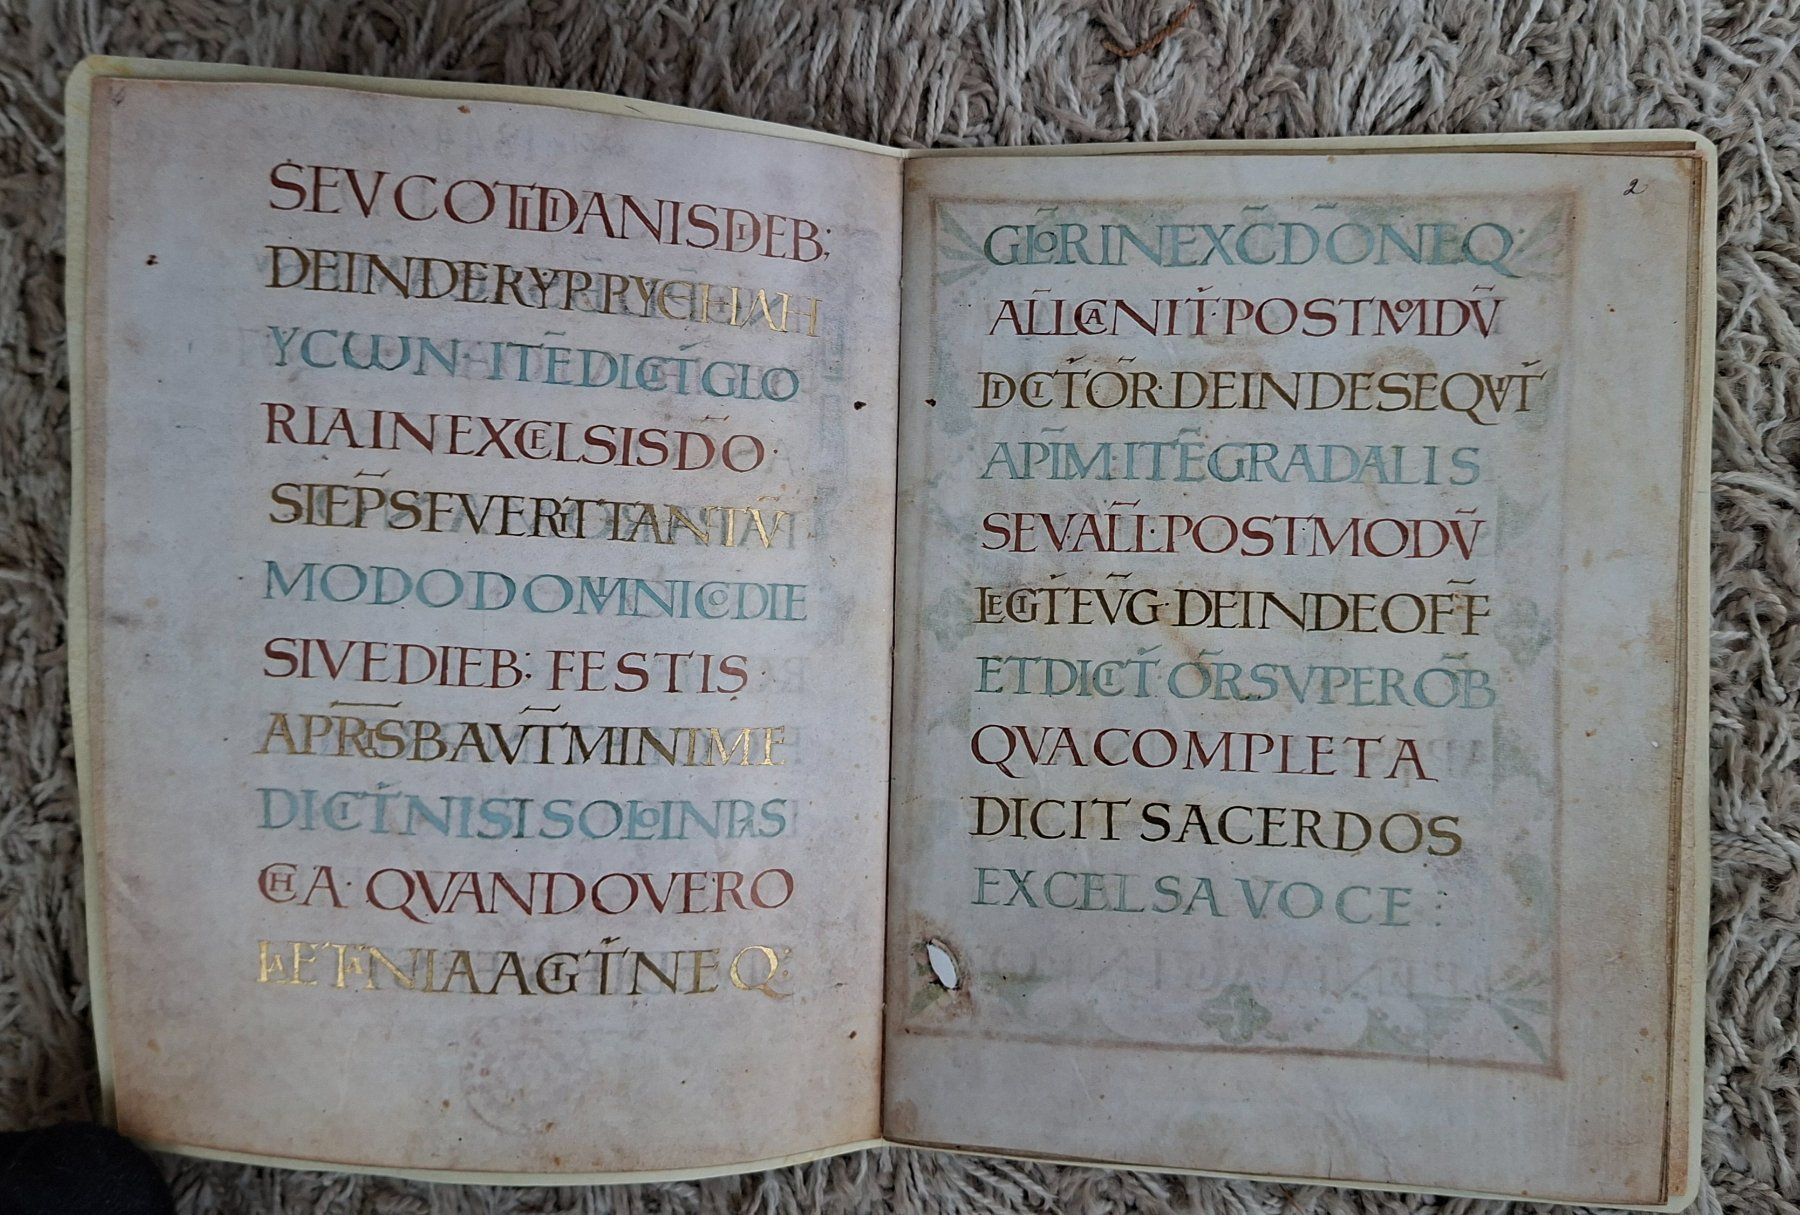 SEV COTIDIANIS DIEB;
DEINDE KYRPRYE HAH
YCWN· ITĒ DICIT̄ GLO
RIA IN EXCELSIS D̄O·
SI EP̄S FVERIT TANTV̄
MODO DOMINICO DIE
SIVE DIEB; FESTIS·
A PR̄IS B AVT̄ MINIME
DICIT̄ NISI SOLO IN PAS
CHA· QVANDO VERO
LAETANIA AGIT̄ NEQ:
2
GLŌR IN EXC̄ D̄O NEQ·
AL̄L CANIT̄· POSTMODV̄
DICIT̄ ŌR· DEINDE SEQVIT̄
AP̄LM· ITĒ GRADALIS
SEV· AL̄L· POSTMODV̄
LEGIT̄ EV̄G· DEINDE OF̄F
ET DICIT̄ ŌR SVPER ŌB
QVA COMPLETA
DICIT SACERDOS
EXCELSA VOCE :